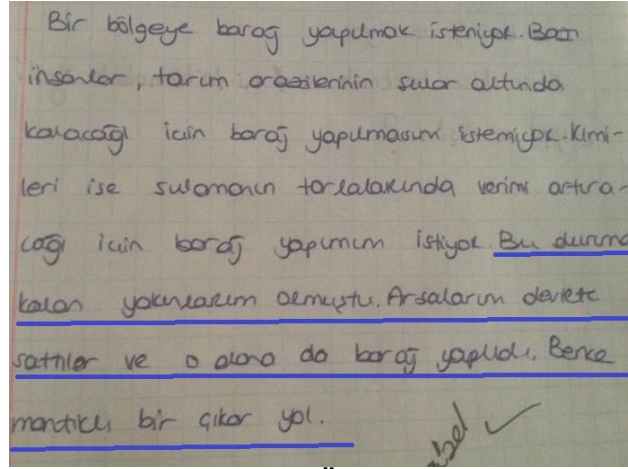 Bir bölgeye baraj yapılmak isteniyor. Bazı
insanlar, tarım arazilerinin sular altında
kalacağı için baraj yapılmasını istemiyor. Kimi-
leri ise sulamanın tarlalarında verimi artıra-
cağı için baraj yapımını istiyor. Bu durumda
kalan yakınlarım olmuştu. Arsalarını devlete
sattılar ve o alana da baraj yapıldı. Bence
mantıklı bir çıkar yol.